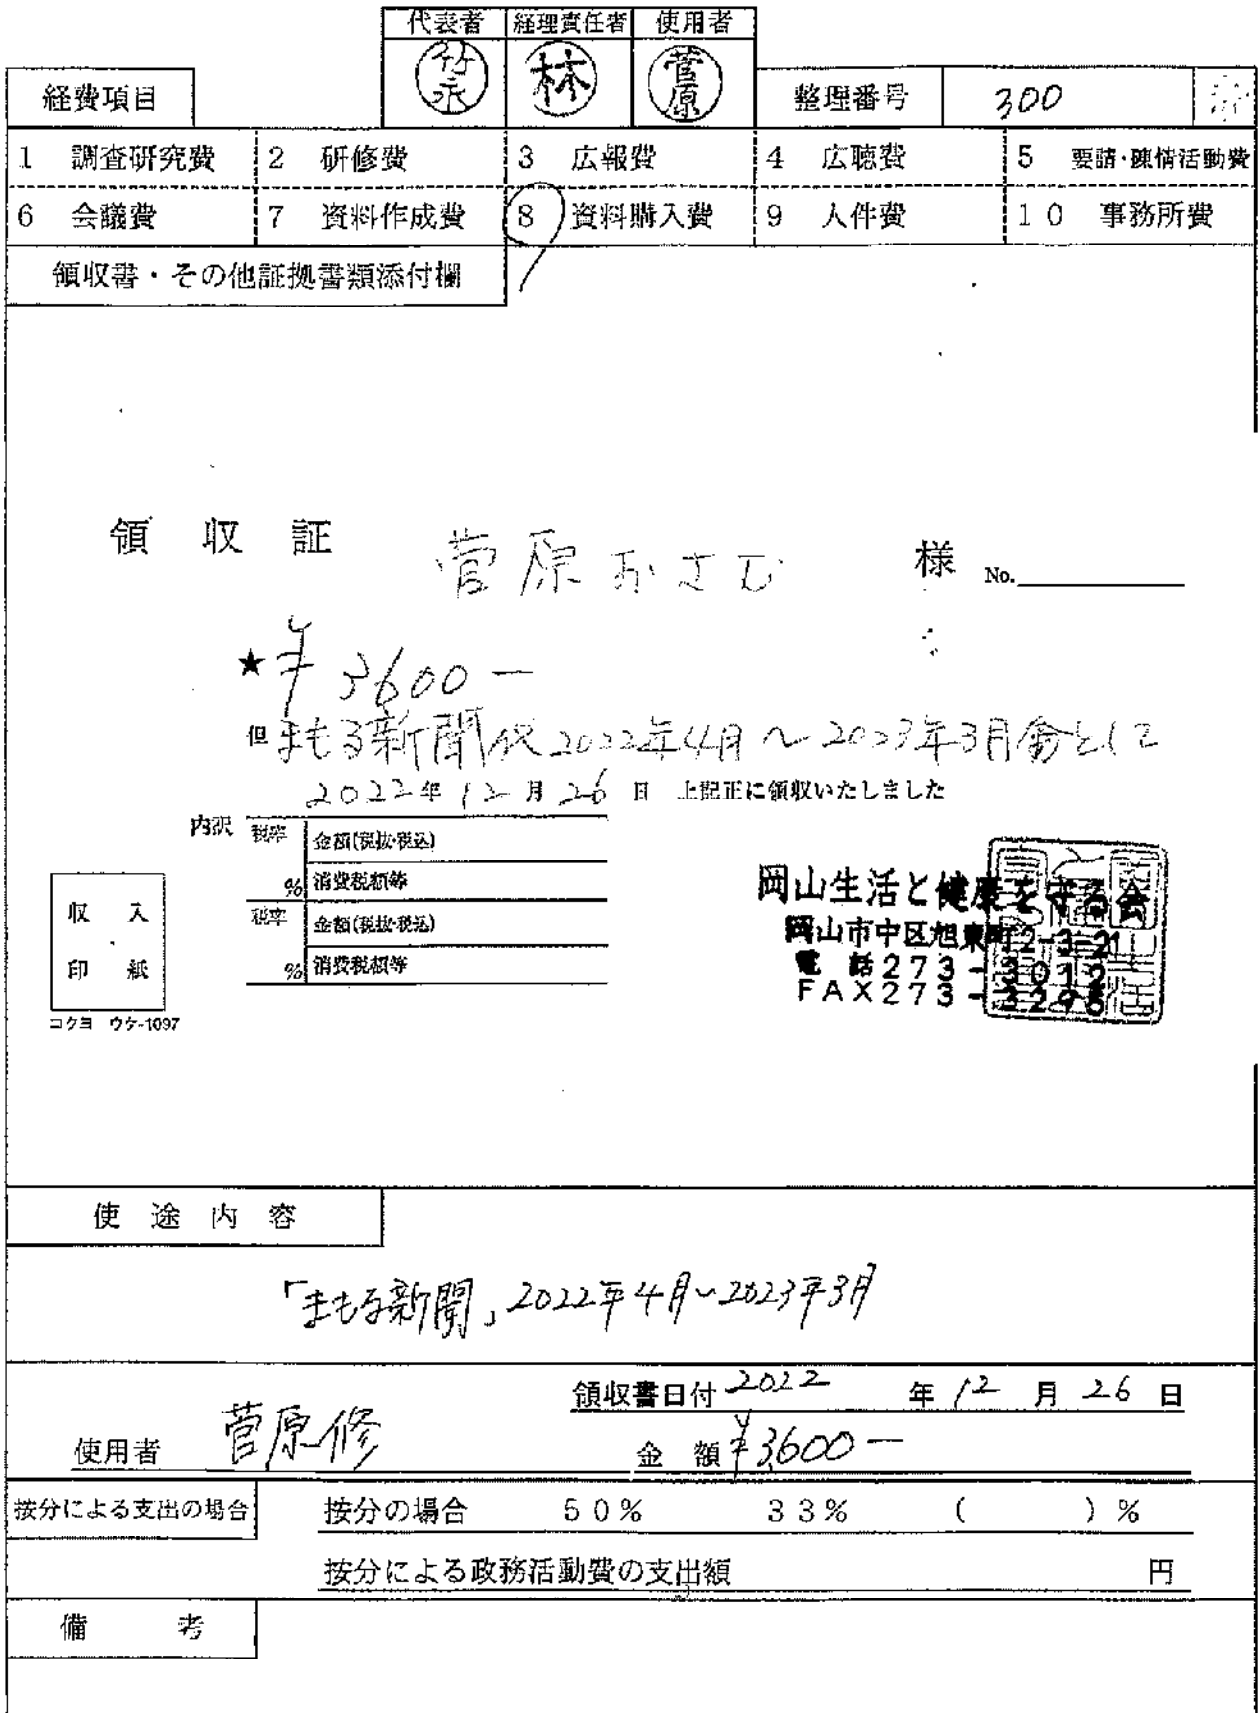 代表者 経理責任者 使用者
竹永 林 菅原
経費項目 整理番号 300
1 調査研究費 2 研修費 3 広報費 4 広聴費 5 要請・陳情活動費
6 会議費 7 資料作成費 8 資料購入費 9 人件費 10 事務所費
領収書・その他証拠書類添付欄
領収証 菅原おさむ 様 No.
★ ¥3600-
但 まもる新聞代2022年4月~2023年3月分として
2022年12月26日 上記正に領収いたしました
内訳 税率 金額(税抜・税込)
% 消費税額等
税率 金額(税抜・税込)
% 消費税額等
収入
印紙
コクヨ ウケ-1097
岡山生活と健康を守る会
岡山市中区旭東町2-3-21
電話273-3012
FAX273-3296
使途内容
「まもる新聞」2022年4月~2023年3月
領収書日付 2022年12月26日
使用者 菅原修 金額 ¥3,600-
按分による支出の場合 按分の場合 50% 33% ( )%
按分による政務活動費の支出額 円
備考